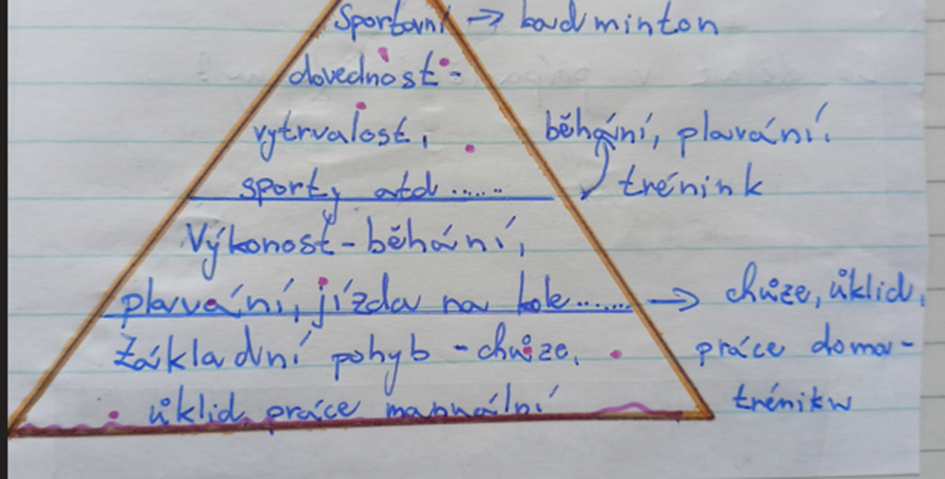 Sportovní → badminton
dovednost -
vytrvalost, běhání, plavání.
sporty atd...... trénink
Výkonost - běhání,
plavání, jízda na kole....... → chůze, úklid,
Základní pohyb - chůze, práce doma -
úklid, práce manuální trénikw